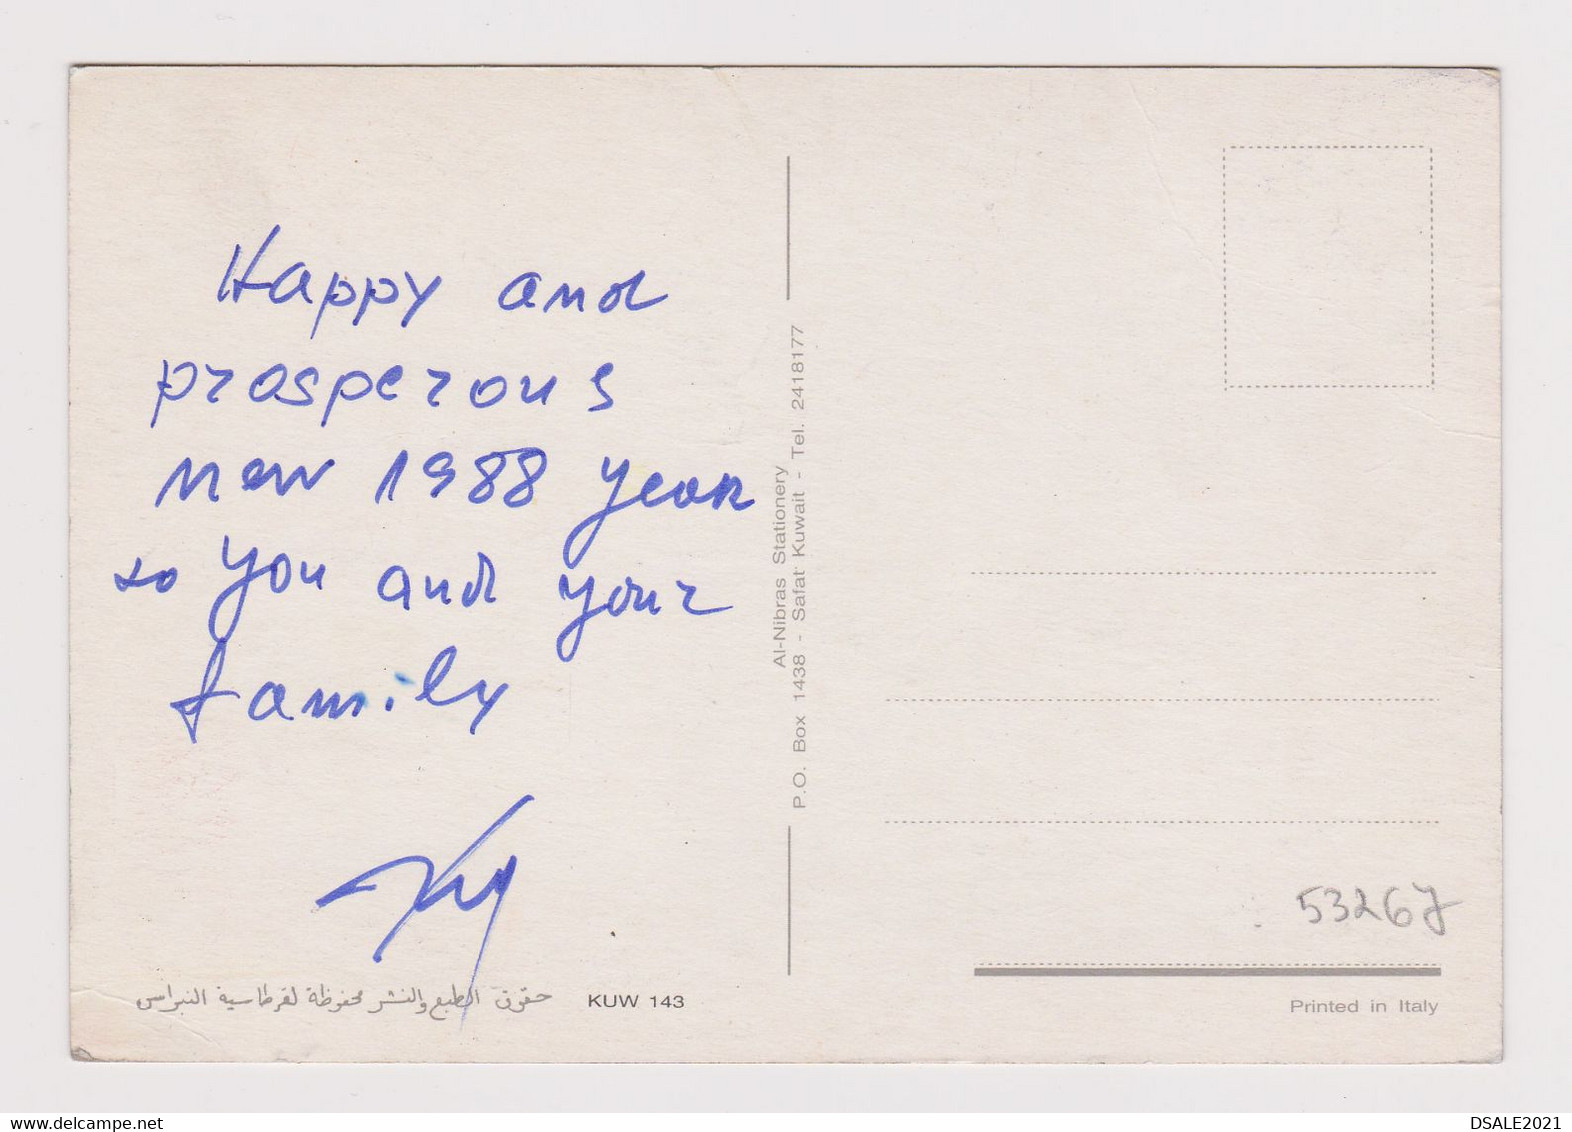 Happy and
prosperous
new 1988 year
to you and your
family
حقوق الطبع والنشر محفوظة لقرطاسية النبراس
KUW 143
Al-Nibras Stationery
P.O. Box 1438 - Safat Kuwait - Tel. 2418177
53267
Printed in Italy
DSALE2021